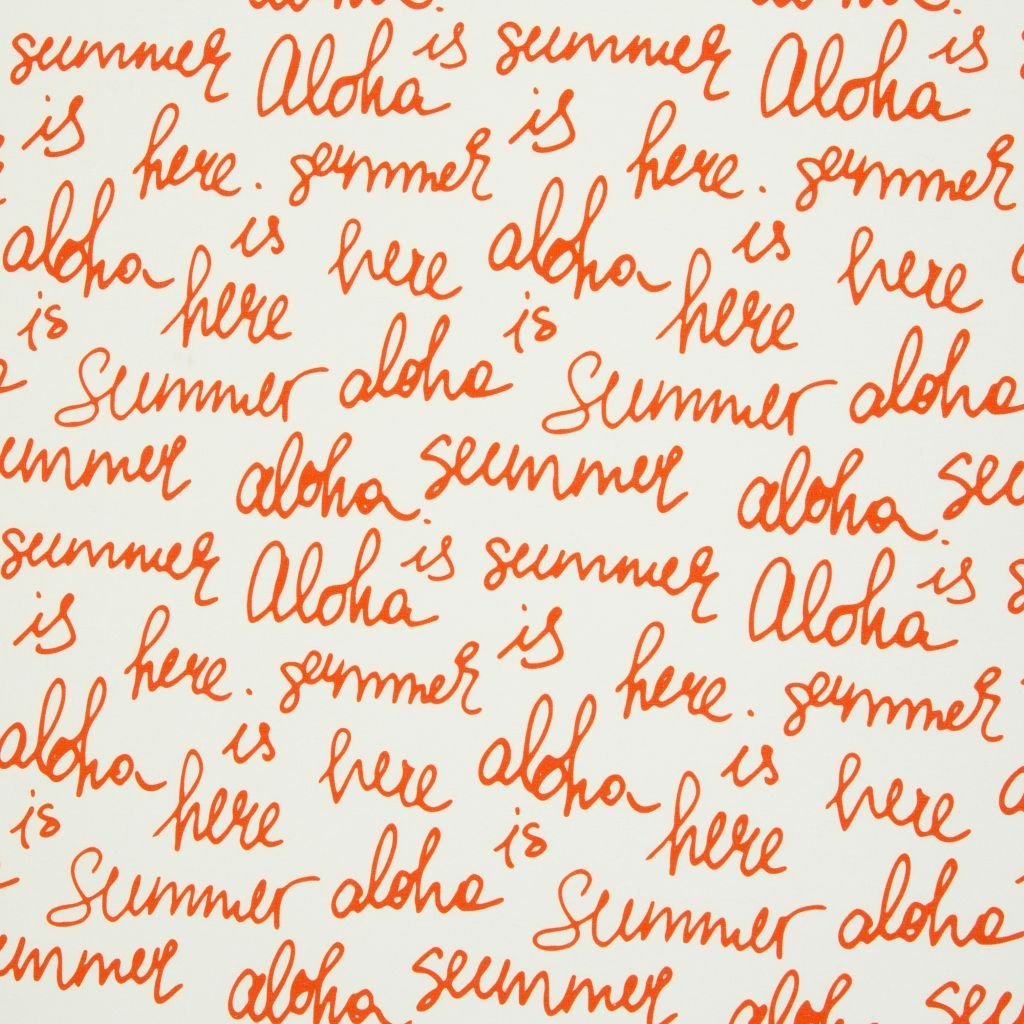 summer Aloha is summer Aloha is
is here. summer is here. summer
aloha is here aloha is here
is here is here
Summer aloha Summer aloha
aloha. summer aloha.
summer Aloha is summer Aloha is
is here. summer is here. summer
aloha is here aloha is here
is here is here
Summer aloha Summer aloha
aloha summer